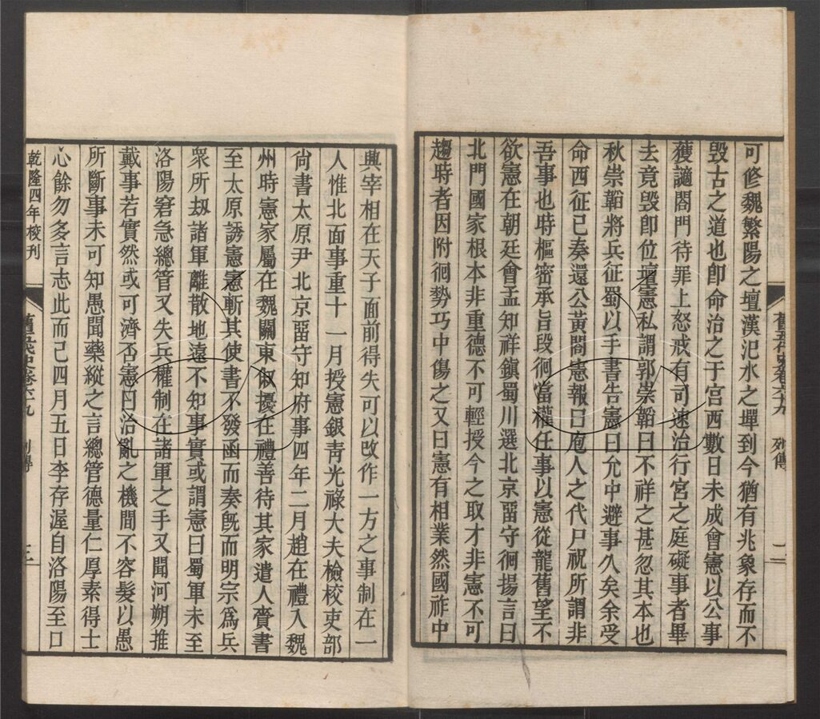 可修魏繁陽之壇漢汜水之墠到今猶有兆象存而不
毀古之道也卽命治之于宮西數日未成會憲以公事
獲譴閤門待罪上怒戒有司速治行宮之庭礙事者畢
去竟毀卽位壇憲私謂郭崇韜曰不祥之甚忽其本也
秋崇韜將兵征蜀以手書告憲曰允中避事久矣余受
命西征已奏還公黃閤憲報曰庖人之代尸祝所謂非
吾事也時樞密承旨段徊當權任事以憲從龍舊望不
欲憲在朝廷會孟知祥鎭蜀川選北京畱守徊揚言曰
北門國家根本非重德不可輕授今之取才非憲不可
趨時者因附徊勢巧中傷之又曰憲有相業然國祚中
舊五代史卷六十九 列傳 二
興宰相在天子面前得失可以改作一方之事制在一
人惟北面事重十一月授憲銀靑光祿大夫檢校吏部
尚書太原尹北京畱守知府事四年二月趙在禮入魏
州時憲家屬在魏關東俶擾在禮善待其家遣人賫書
至太原誘憲憲斬其使書不發函而奏旣而明宗爲兵
衆所劫諸軍離散地遠不知事實或謂憲曰蜀軍未至
洛陽窘急總管又失兵權制在諸軍之手又聞河朔推
戴事若實然或可濟否憲曰治亂之機間不容髮以愚
所斷事未可知愚聞藥縱之言總管德量仁厚素得士
心餘勿多言志此而已四月五日李存渥自洛陽至口
乾隆四年校刊
舊五代史卷六十九 列傳 三